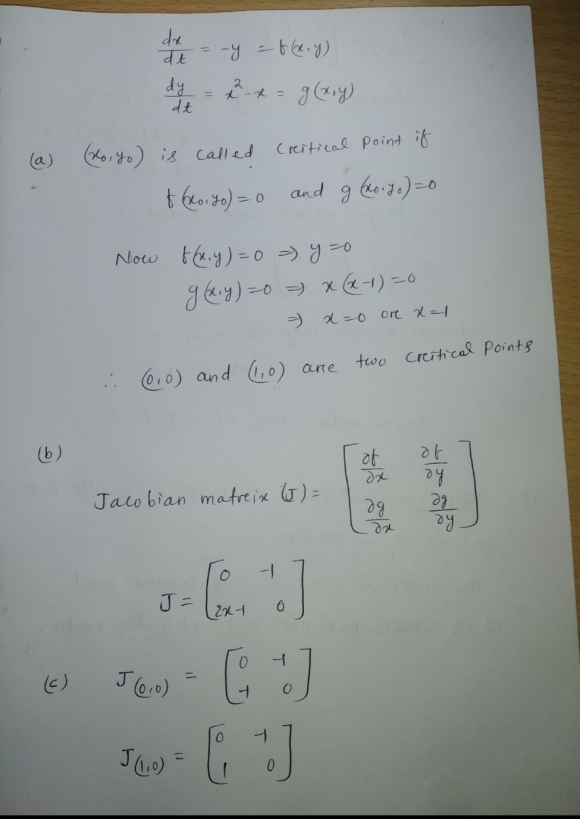 dx/dt = -y = f(x,y)
dy/dt = x² - x = g(x,y)
(a) (x₀,y₀) is called Critical Point if
f(x₀,y₀)=0 and g(x₀,y₀)=0
Now f(x,y)=0 ⇒ y=0
g(x,y)=0 ⇒ x(x-1)=0
⇒ x=0 or x=1
∴ (0,0) and (1,0) are two critical points
(b)
Jacobian matrix (J) = [∂f/∂x ∂f/∂y
∂g/∂x ∂g/∂y]
J = [0 -1
2x-1 0]
(c) J(0,0) = [0 -1
-1 0]
J(1,0) = [0 -1
1 0]